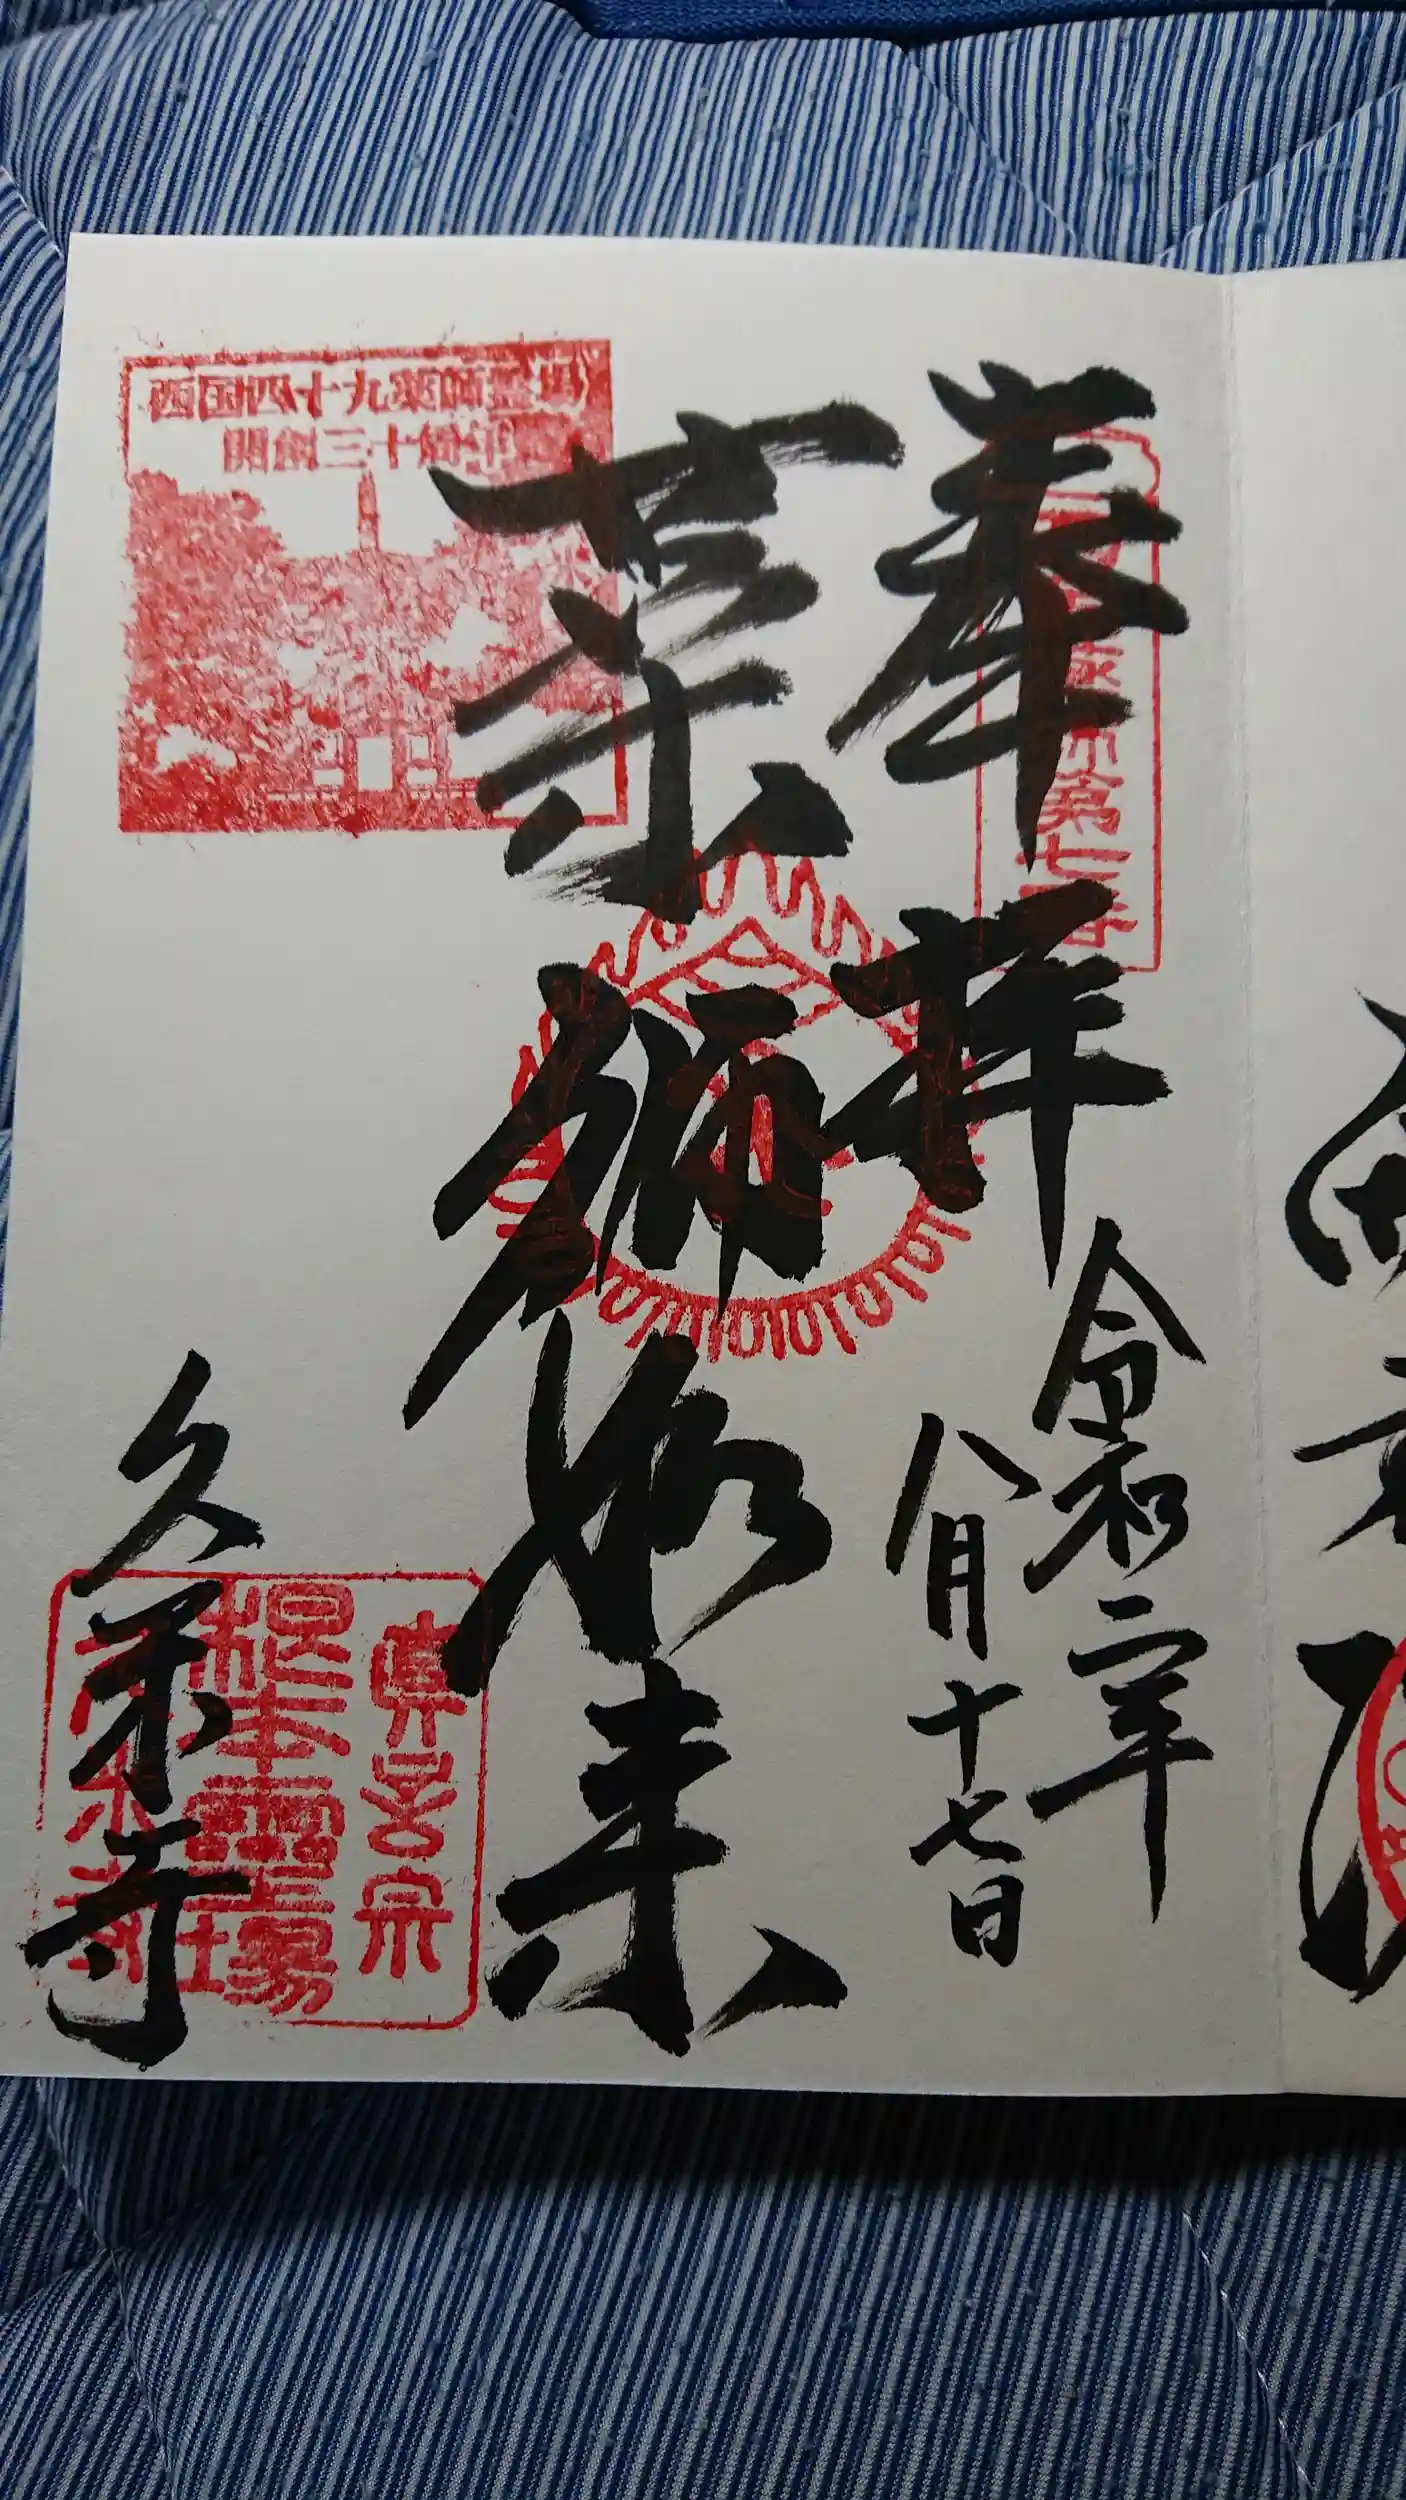 奉拝
令和二年
八月十七日
薬師如来
久米寺
西国四十九薬師霊場
開創三十周年
第七番
真言宗
根本霊場
久米寺